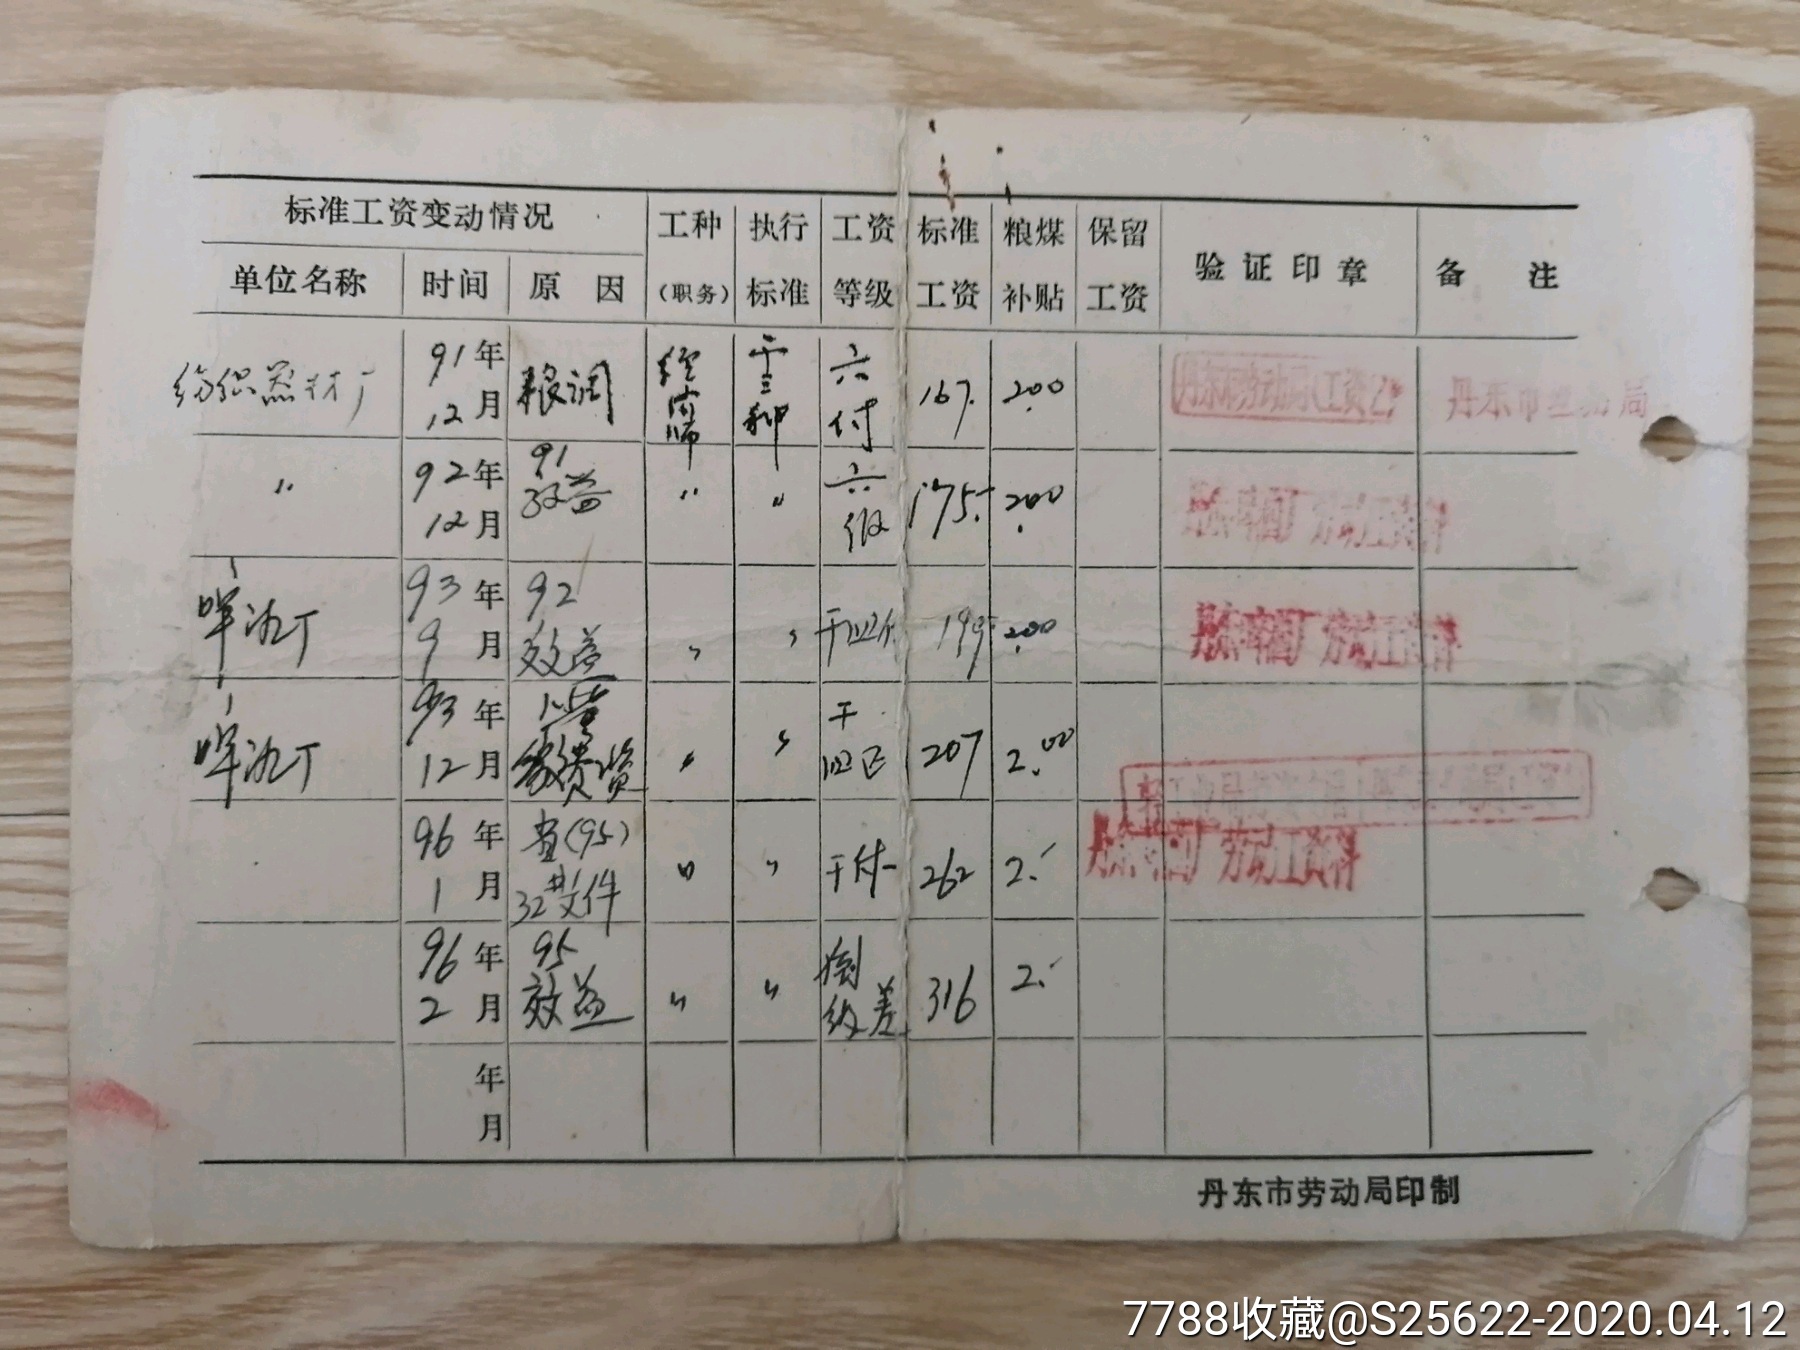 标准工资变动情况 工种 执行 工资 标准 粮煤 保留 验证印章 备注
单位名称 时间 原因 （职务） 标准 等级 工资 补贴 工资
纺织器材厂 91年 12月 粮调 干三种 六付 167. 2.00 丹东市劳动局(工资)
〃 92年 12月 91 效益 〃 〃 六级 175. 2.00 丹东啤酒厂劳动工资科
啤酒厂 93年 9月 92 效益 〃 〃 199 2.00 丹东啤酒厂劳动工资科
啤酒厂 93年 12月 〃 〃 干四正 207 2.00
96年 1月 (95) 32号文件 〃 〃 262 2. 丹东啤酒厂劳动工资科
96年 2月 95 效益 〃 〃 级差 316 2.
年 月
丹东市劳动局印制
7788收藏@S25622-2020.04.12